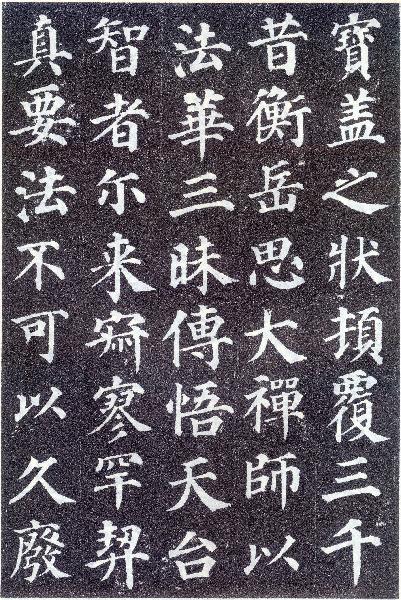 寶盖之狀頂覆三千
昔衡岳思大禪師以
法華三昧傳悟天台
智者尔来寂寥罕契
真要法不可以久廢